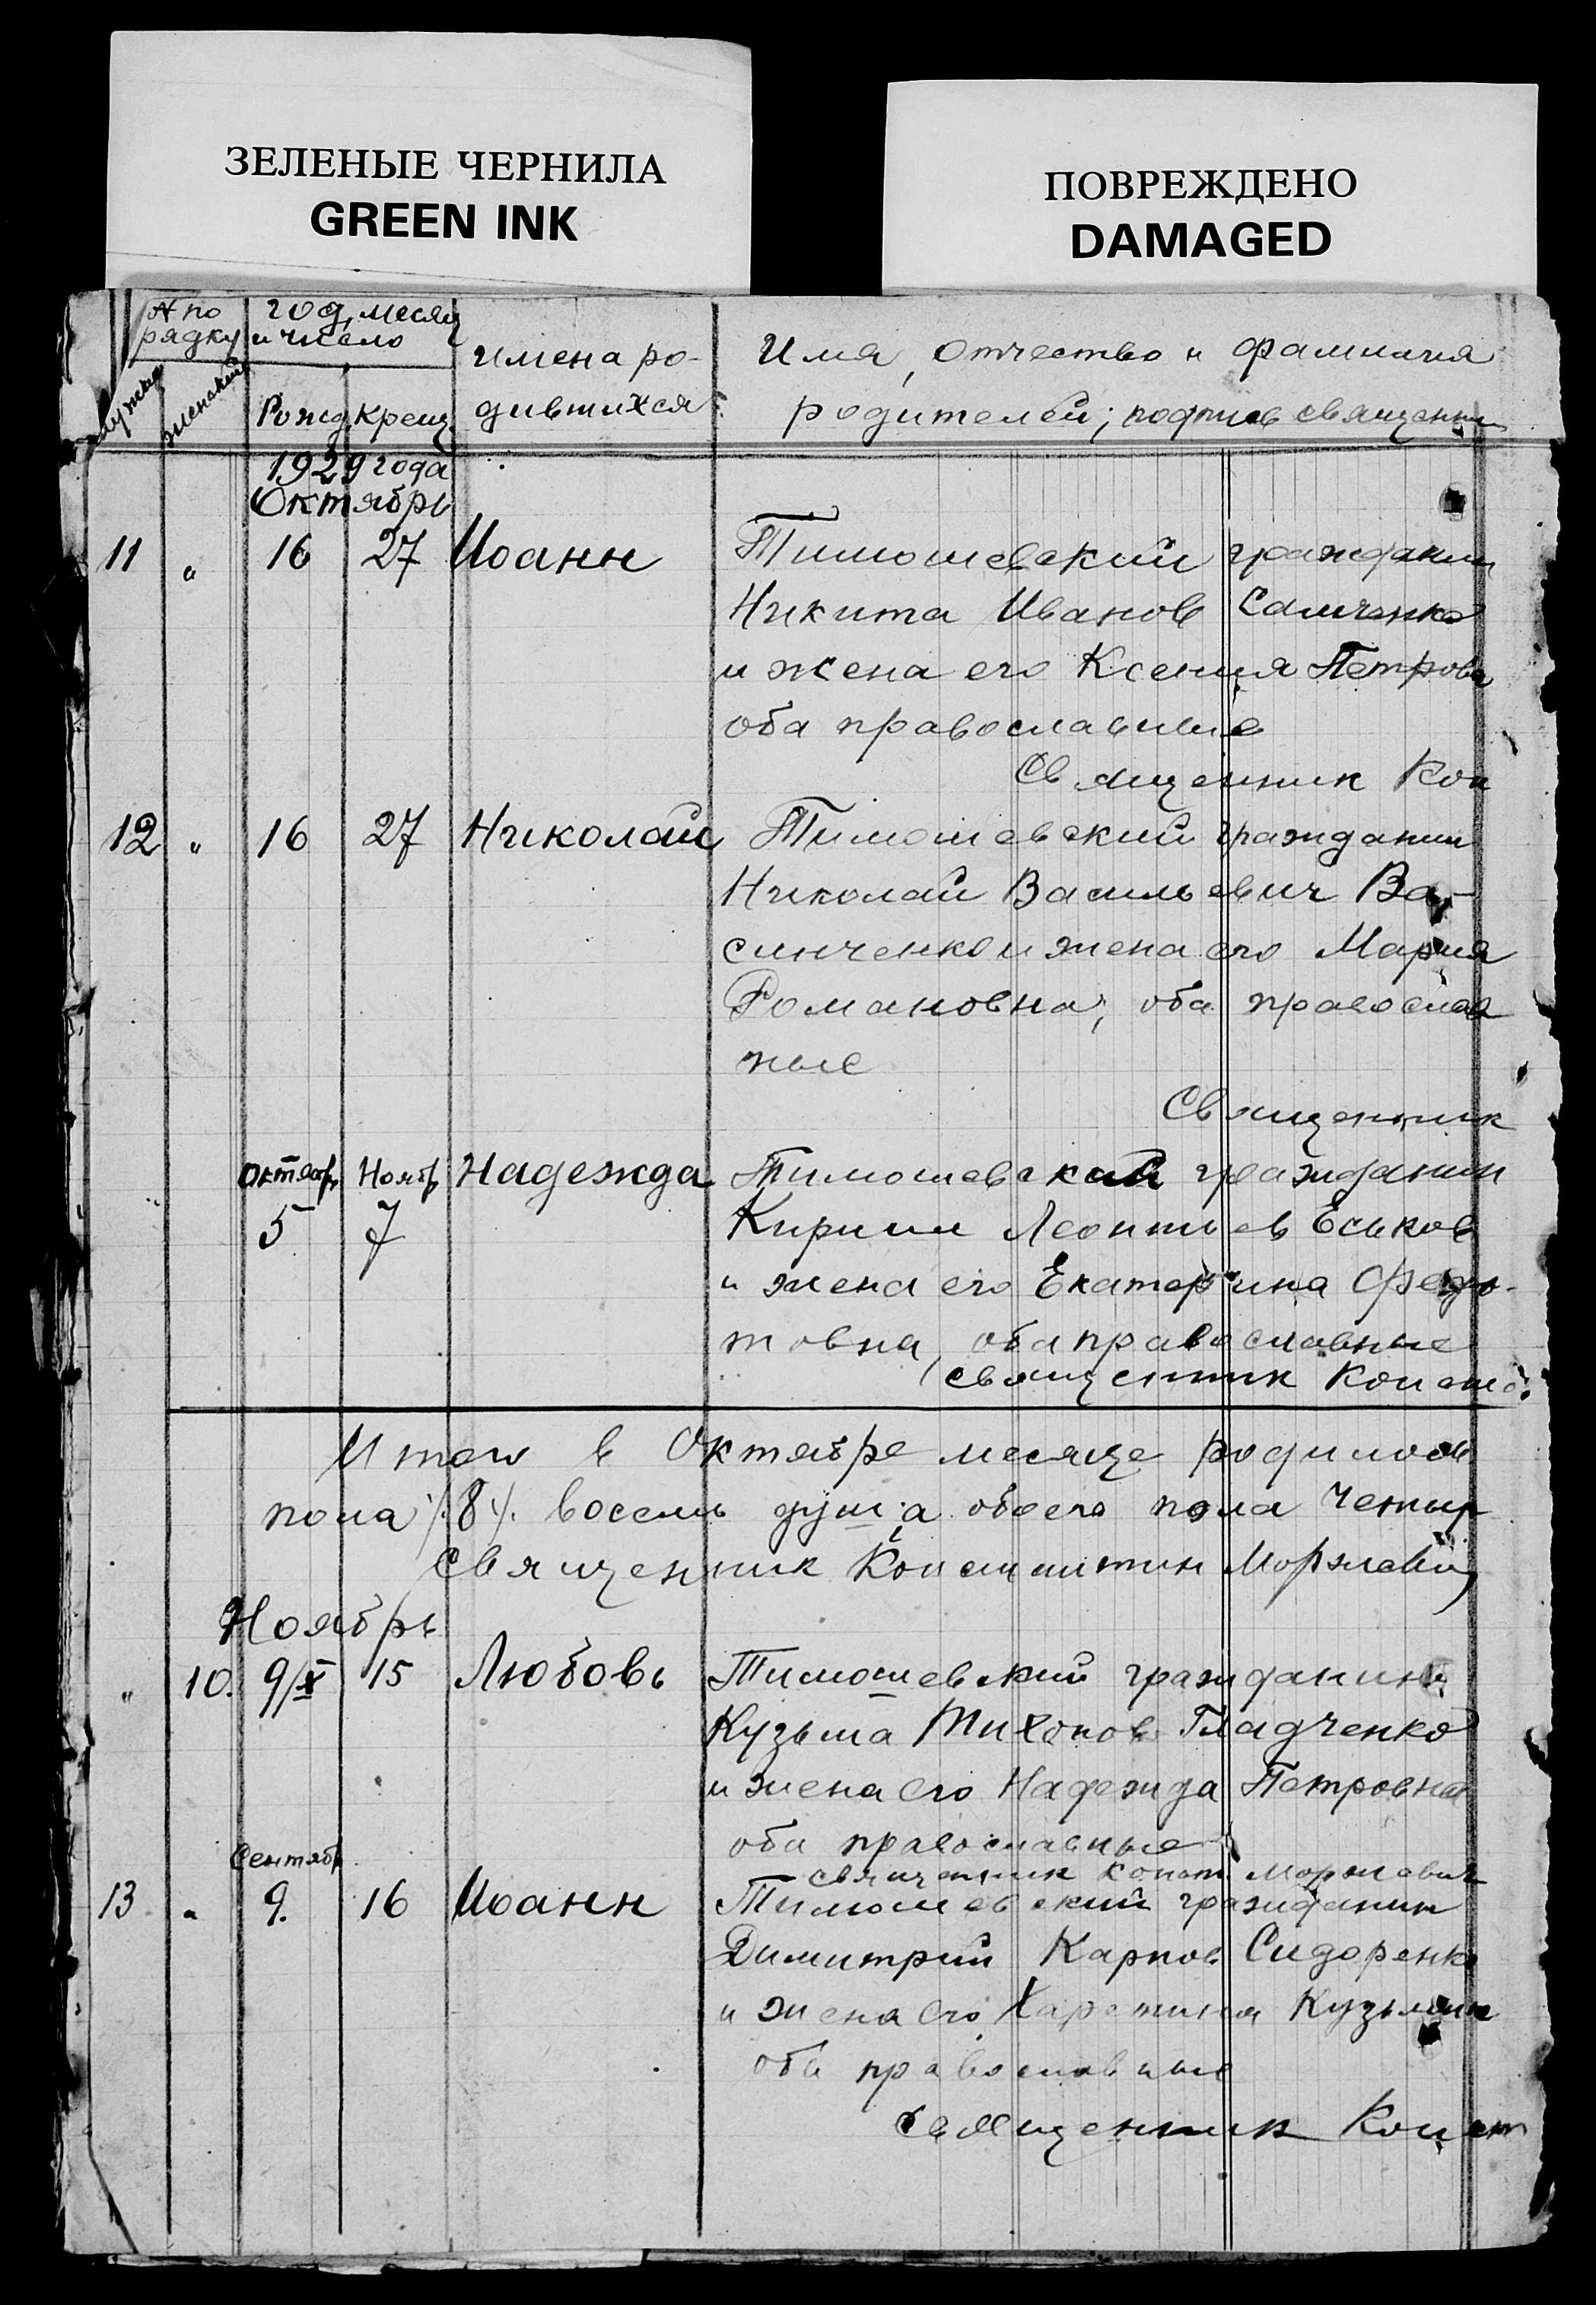 ЗЕЛЕНЫЕ ЧЕРНИЛА
GREEN INK
ПОВРЕЖДЕНО
DAMAGED
№ по рядку
год, месяц и число
Имена родившихся
Имя, отчество и фамилия
родителей; подпись священни
мужской женский Рожд. Крещ.
1929 года
Октябрь
11 " 16 27 Иоанн Тимошевский гражданин
Никита Иванов Самченко
и жена его Ксения Петрова
оба православные
Священник Кон
12 " 16 27 Николай Тимошевский гражданин
Николай Васильевич Ва-
синченко и жена его Мария
Романовна, оба православ
ные
Священник
Октябр. Ноябр Надежда Тимошевский гражданин
5 7 Кирилл Леонтьев Еськов
и жена его Екатерина Федо-
товна, оба православные
священник Конст.
Итого в Октябре месяце родилось
пола /8/. восемь душ, а обоего пола Четыр
Священник Константин
Ноябрь
" 10. 9/X 15 Любовь Тимошевский гражданин
Кузьма Тихонов Гладченко
и жена его Надежда Петровна
оба православные
священник Конст.
Сентябр
13 " 9. 16 Иоанн Тимошевский гражданин
Димитрий Карпов Сидоренко
и жена его Харетина Кузьмин
оба православные
Священник Конст